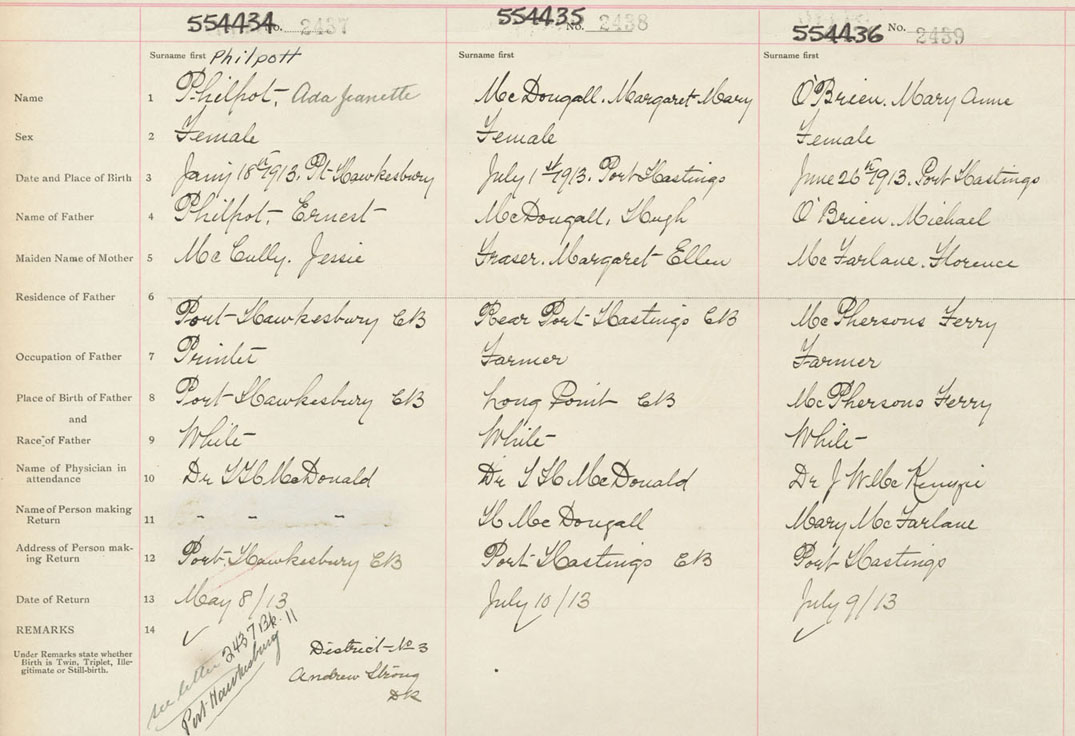 554434 No. 2437 554435 No. 2438 554436 No. 2439
Surname first Philpott Surname first Surname first
Name 1 Philpot, Ada Jeanette McDougall. Margaret Mary O'Brien. Mary Anne
Sex 2 Female Female Female
Date and Place of Birth 3 Jany 18th 1913. Pt Hawkesbury July 1st 1913. Port Hastings June 26th 1913. Port Hastings
Name of Father 4 Philpot, Ernest McDougall, Hugh O'Brien. Michael
Maiden Name of Mother 5 McCully. Jessie Fraser. Margaret Ellen McFarlane. Florence
Residence of Father 6
Port Hawkesbury CB Rear Port Hastings CB McPhersons Ferry
Occupation of Father 7 Printer Farmer Farmer
Place of Birth of Father 8 Port Hawkesbury CB Long Point CB McPhersons Ferry
and
Race of Father 9 White White White
Name of Physician in
attendance 10 Dr McDonald Dr McDonald Dr J W
Name of Person making
Return 11 " " " H McDougall Mary McFarlane
Address of Person mak-
ing Return 12 Port Hawkesbury CB Port Hastings CB Port Hastings
Date of Return 13 May 8/13 July 10/13 July 9/13
REMARKS 14 ✓ ✓
Under Remarks state whether
Birth is Twin, Triplet, Ille-
gitimate or Still-birth.
see letter 2437 Bk. 11
Port Hawkesbury
District No 3
Andrew Strong
DR